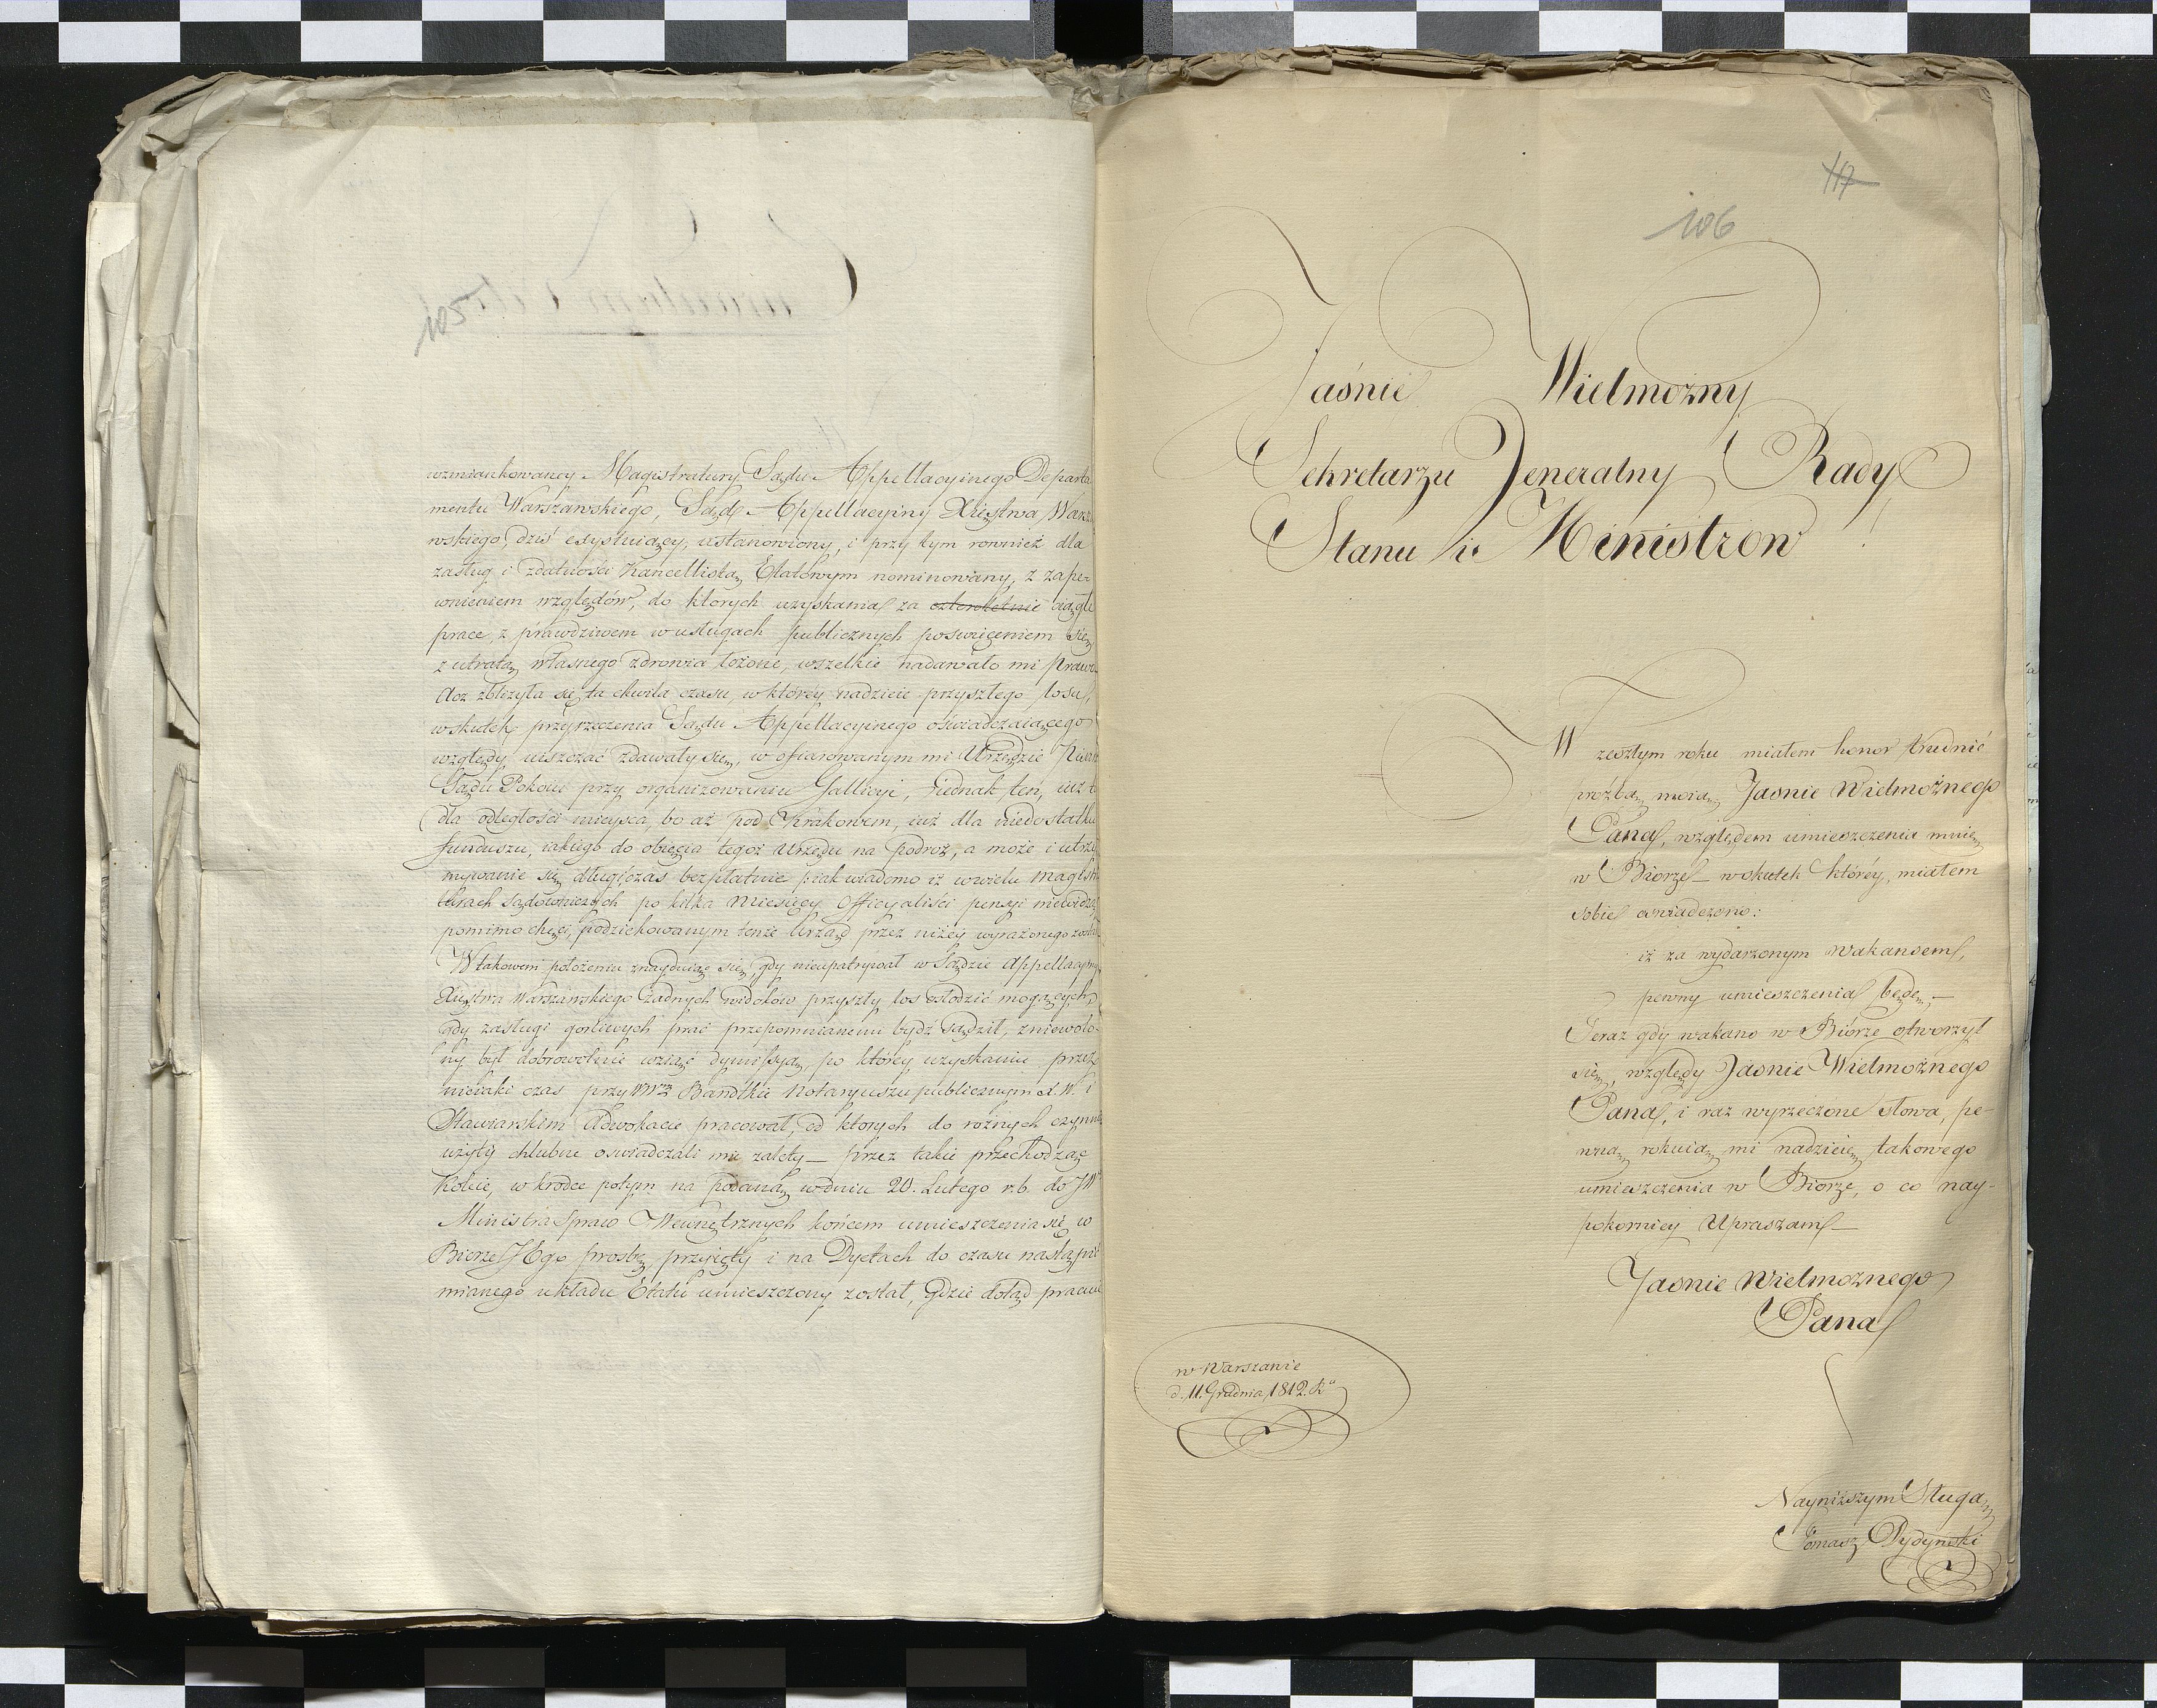 wzmiankowaney Magistratury Sądu Appellacyinego Departa
mentu Warszawskiego, Sąd Appellacyiny Xięstwa Warsza
wskiego, dziś exystuiący, ustanowiony, i przy tym rownież dla
zasług i zdatności Kancellistą Etatowym nominowany, z zape-
wnieniem względów, do ktorych uzyskania za czteroletnie ciągłe
prace, z prawdziwem w usługach publicznych poswięceniem się
z utratą własnego zdrowia łożone, wszelkie nadawało mi prawo
Acz zbliżyła się ta chwila czasu, w któréy nadzieie przyszłego losu,
w skutek przyrzeczenia Sądu Appellacyinego oświadczaiącego
względy uiszczać zdawały się, w ofiarowanym mi Urzędzie
Sądu Pokoiu przy organizowaniu Gallicyi, iednak ten, iuż to
dla odległości mieysca, bo aż pod Krakowem, iuż dla niedostatku
funduszu, iakiego do obięcia tegoż Urzędu na podroż, a może i utrzy
mywanie się długi czas bezpłatnie piak wiadomo iż w wielu magistra
turach Sądowniczych po kilka miesięcy Officyaliści pensyi niewidzą
pomimo chęci, podziękowanym tenże Urząd przez niżéy wyrażonego został
W takowem położeniu znayduiąc się, gdy nieupatrywał w Sądzie Appellacyinym
Xięstwa Warszawskiego żadnych widoków przyszły los osłodzić mogących,
gdy zasługi gorliwych prac przepomnianemi bydź sądził, zniewolo-
ny był dobrowolnie wziąć dymissyą, po któréy uzyskaniu przez
nieiaki czas przy WWm Bandtkie Notaryuszu publicznym X. W. i
Stawiarskim Adwokacie pracował, od ktorych do rożnych czynno
użyty chlubne oswiadczali mi zalety — przez takie przechodząc
koleie, wkrodce potym na podaną w dniu 20. Lutego r. b. do JW
Ministra Spraw Wewnętrznych końcem umieszczenia się w
Biorze JEgo prosbę, przyięty i na Dyetach do czasu nastąpić
mianego układu Etatu umieszczony został, gdzie dotąd pracuie
105
117
106
Jaśnie Wielmożny
Sekretarzu Jeneralny Rady
Stanu i Ministrow!
W zeszłym roku miałem honor trudnić
proźbą moią Jasnie Wielmożnego
Pana, względem umieszczenia mnie
w Biorze — w skutek któréy, miałem
sobie oswiadczono:
iż za wydarzonym wakansem,
pewny umieszczenia będę. —
Teraz gdy wakans w Biórze otworzył
się, względy Jasnie Wielmożnego
Pana, i raz wyrzeczone słowa, pe-
wną rokuią mi nadzieię takowego
umieszczenia w Biorze, o co nay-
pokorniey Upraszam —
Jasnie Wielmożnego
Pana
w Warszawie
d. 11. Grudnia 1812. Ru
Nayniższym Sługą
Tomasz Pydynski